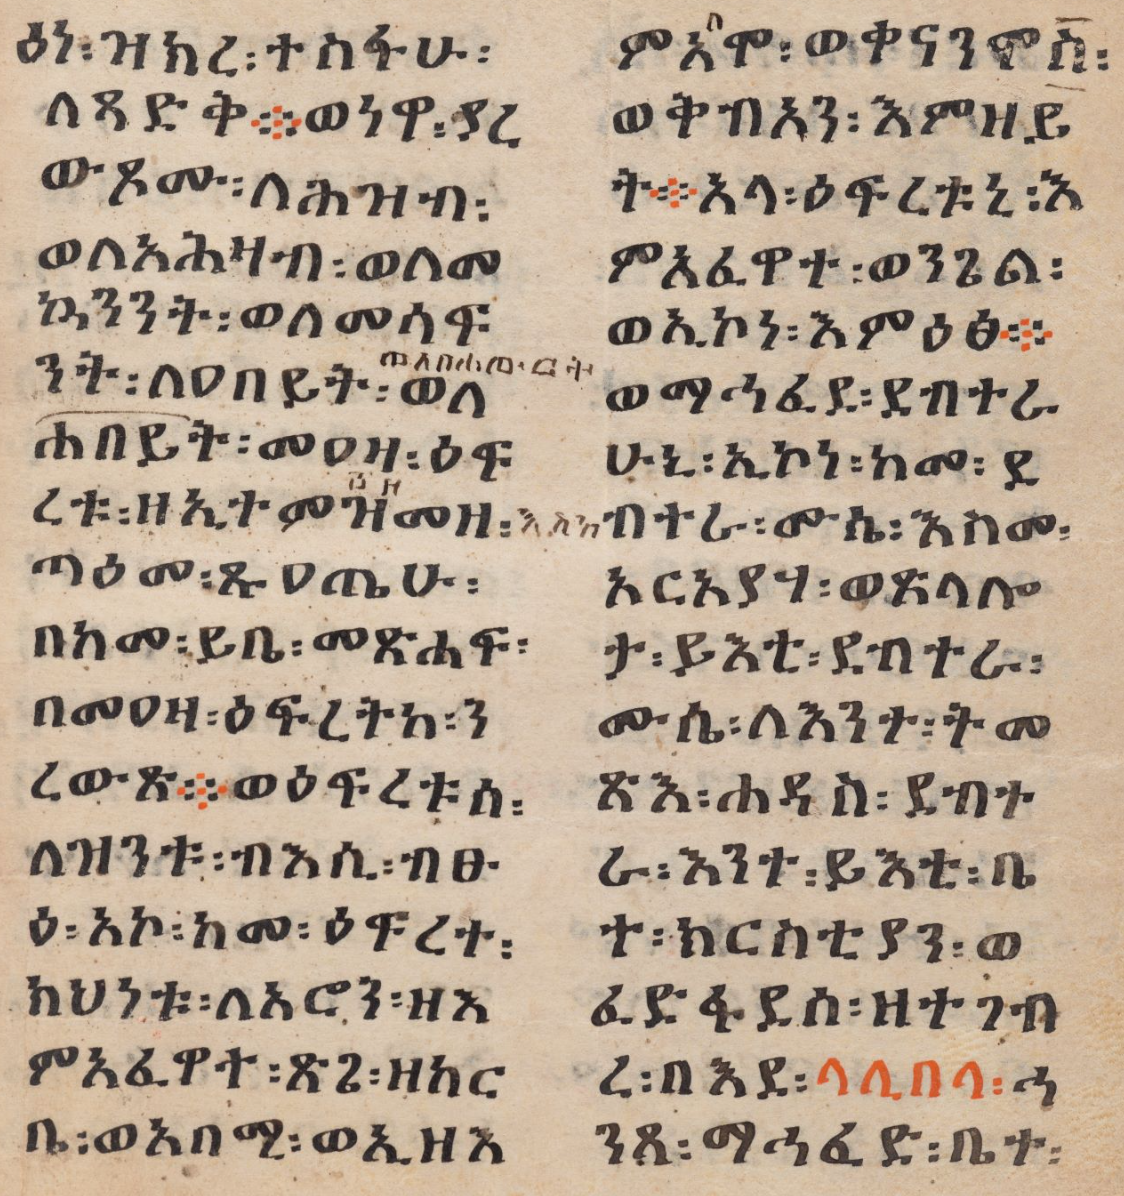 ዕነ፡ዝክረ፡ተስፋሁ፡
ለጻድቅ።ወነዋ፡ያረ
ውጾሙ፡ለሕዝብ፡
ወለአሕዛብ፡ወለመ
ኳንንት፡ወለመሳፍ
ንት፡ለዐበይት፡ወለ
ሐበይት፡መዐዛ፡ዕፍ
ረቱ፡ዘኢተምዝመዘ፡
ጣዕመ፡ጼዐጤሁ፡
በከመ፡ይቤ፡መጽሐፍ፡
በመዐዛ፡ዕፍረትከ፡ን
ረውጽ።ወዕፍረቱሰ፡
ለዝንቱ፡ብእሲ፡ብፀ
ዕ፡አኮ፡ከመ፡ዕፍረተ፡
ክህነቱ፡ለአሮን፡ዘእ
ምአፈዋተ፡ጽጌ፡ዘከር
ቤ፡ወአበሚ፡ወኢዘእ
ምአሞ፡ወቀናንሞስ፡
ወቅብእን፡እምዘይ
ት።አላ፡ዕፍረቱኒ፡እ
ምአፈዋተ፡ወንጌል፡
ወኢኮነ፡እምዕፅ።
ወማኅፈደ፡ደብተራ
ሁኒ፡ኢኮነ፡ከመ፡ደ
ብተራ፡ሙሴ፡እስመ፡
አርአያሃ፡ወጽላሎ
ታ፡ይእቲ፡ደብተራ፡
ሙሴ፡ለእንተ፡ትመ
ጽእ፡ሐዳስ፡ደብተ
ራ፡እንተ፡ይእቲ፡ቤ
ተ፡ክርስቲያን፡ወ
ፈድፋደሰ፡ዘተገብ
ረ፡በእደ፡ላሊበላ፡ሓ
ንጸ፡ማኅፈድ፡ቤተ፡